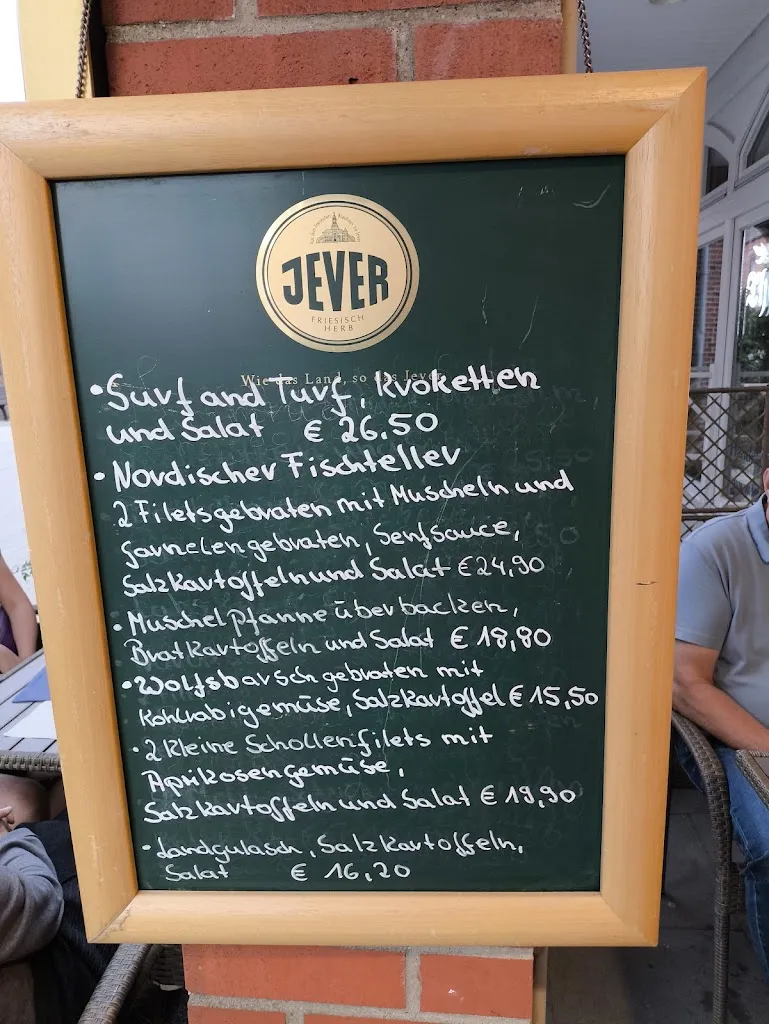 JEVER
FRIESISCH
HERB
Wie das Land, so das Jever
• Surf and Turf, Kroketten
und Salat € 26,50
• Nordischer Fischteller
2 Filets gebraten mit Muscheln und
Garnelen gebraten, Senfsauce,
Salzkartoffeln und Salat € 24,90
• Muschelpfanne überbacken,
Bratkartoffeln und Salat € 18,80
• Wolfsbarsch gebraten mit
Kohlrabigemüse, Salzkartoffel € 15,50
• 2 kleine Schollenfilets mit
Aprikosengemüse,
Salzkartoffeln und Salat € 19,90
• Landgulasch, Salzkartoffeln,
Salat € 16,20